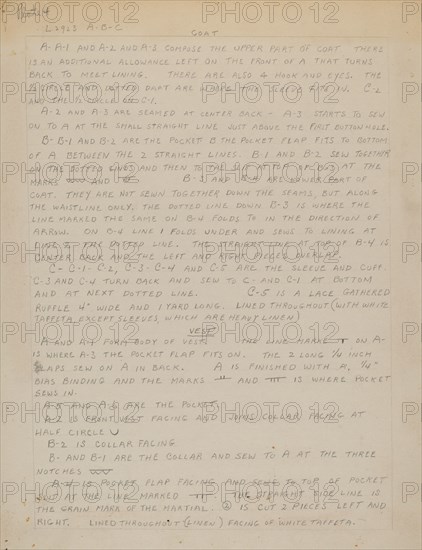 L2923 A-B-C
COAT
A-A-1 AND A-2 AND A-3 COMPOSE THE UPPER PART OF COAT THERE
IS AN ADDITIONAL ALLOWANCE LEFT ON THE FRONT OF A THAT TURNS
BACK TO MEET LINING. THERE ARE ALSO 4 HOOK AND EYES. THE
AND DOTTED PART ARE WHERE THE SLEEVE FITS IN. C-2
AND C-1.
A-2 AND A-3 ARE SEAMED AT CENTER BACK - A-3 STARTS TO SEW
ON TO A AT THE SMALL STRAIGHT LINE JUST ABOVE THE FIRST BUTTON HOLE.
B-B-1 AND B-2 ARE THE POCKET B THE POCKET FLAP FITS TO BOTTOM
OF A BETWEEN THE 2 STRAIGHT LINES. B-1 AND B-2 SEW TOGETHER
ON THE DOTTED LINES AND THEN TO THE AT THE
MARKS AND B-3 AND B-4 ARE PART OF
COAT. THEY ARE NOT SEWN TOGETHER DOWN THE SEAMS, BUT ALONG
THE WAISTLINE ONLY. THE DOTTED LINE DOWN B-3 IS WHERE THE
LINE MARKED THE SAME ON B-4 FOLDS TO IN THE DIRECTION OF
ARROW. ON B-4 LINE FOLDS UNDER AND SEWS TO LINING AT
LINE 2 THE DOTTED LINE. THE STRAIGHT LINE AT TOP OF B-4 IS
CENTER BACK AND THE LEFT AND RIGHT PIECES OVERLAP.
C-C-1-C-2, C-3-C-4 AND C-5 ARE THE SLEEVE AND CUFF.
C-3 AND C-4 TURN BACK AND SEW TO C- AND C-1 AT BOTTOM
AND AT NEXT DOTTED LINE. C-5 IS A LACE GATHERED
RUFFLE 4" WIDE AND 1 YARD LONG. LINED THROUGHOUT (WITH WHITE
TAFFETA, EXCEPT SLEEVES, WHICH ARE HEAVY LINEN)
VEST
A-AND A-1 FORM BODY OF VEST. THE LINE MARKE ON A-
IS WHERE A-3 THE POCKET FLAP FITS ON. THE 2 LONG 1/4 INCH
FLAPS SEW ON A IN BACK. A IS FINISHED WITH A, 1/4"
BIAS BINDING AND THE MARKS AND IS WHERE POCKET
SEWS IN.
A-5 AND A-6 ARE THE POCKET
A-2 IS FRONT VEST FACING AND JOINS COLLAR FACING AT
HALF CIRCLE
B-2 IS COLLAR FACING
B- AND B-1 ARE THE COLLAR AND SEW TO A AT THE THREE
NOTCHES
A-4 IS POCKET FLAP FACING AND SEWS TO TOP OF POCKET
AT THE LINE MARKED THE STRAIGHT LINE IS
THE GRAIN MARK OF THE MARTIAL. IS CUT 2 PIECES LEFT AND
RIGHT. LINED THROUGHOUT (LINEN) FACING OF WHITE TAFFETA.
PHOTO 12